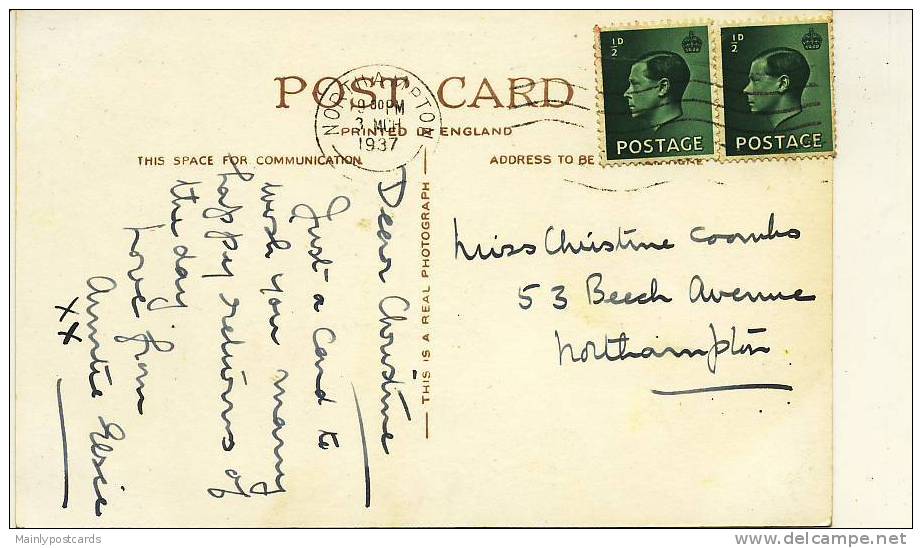 POST CARD
PRINTED IN ENGLAND
NORTHAMPTON
3 MCH
1937
½D
POSTAGE
½D
POSTAGE
THIS SPACE FOR COMMUNICATION
ADDRESS TO BE
THIS IS A REAL PHOTOGRAPH
Dear Christine
Just a card to
wish you many
happy returns of
the day
Love from
Auntie Elsie
xx
Miss Christine Coombs
53 Beech Avenue
Northampton
Mainlypostcards
www.delcampe.net